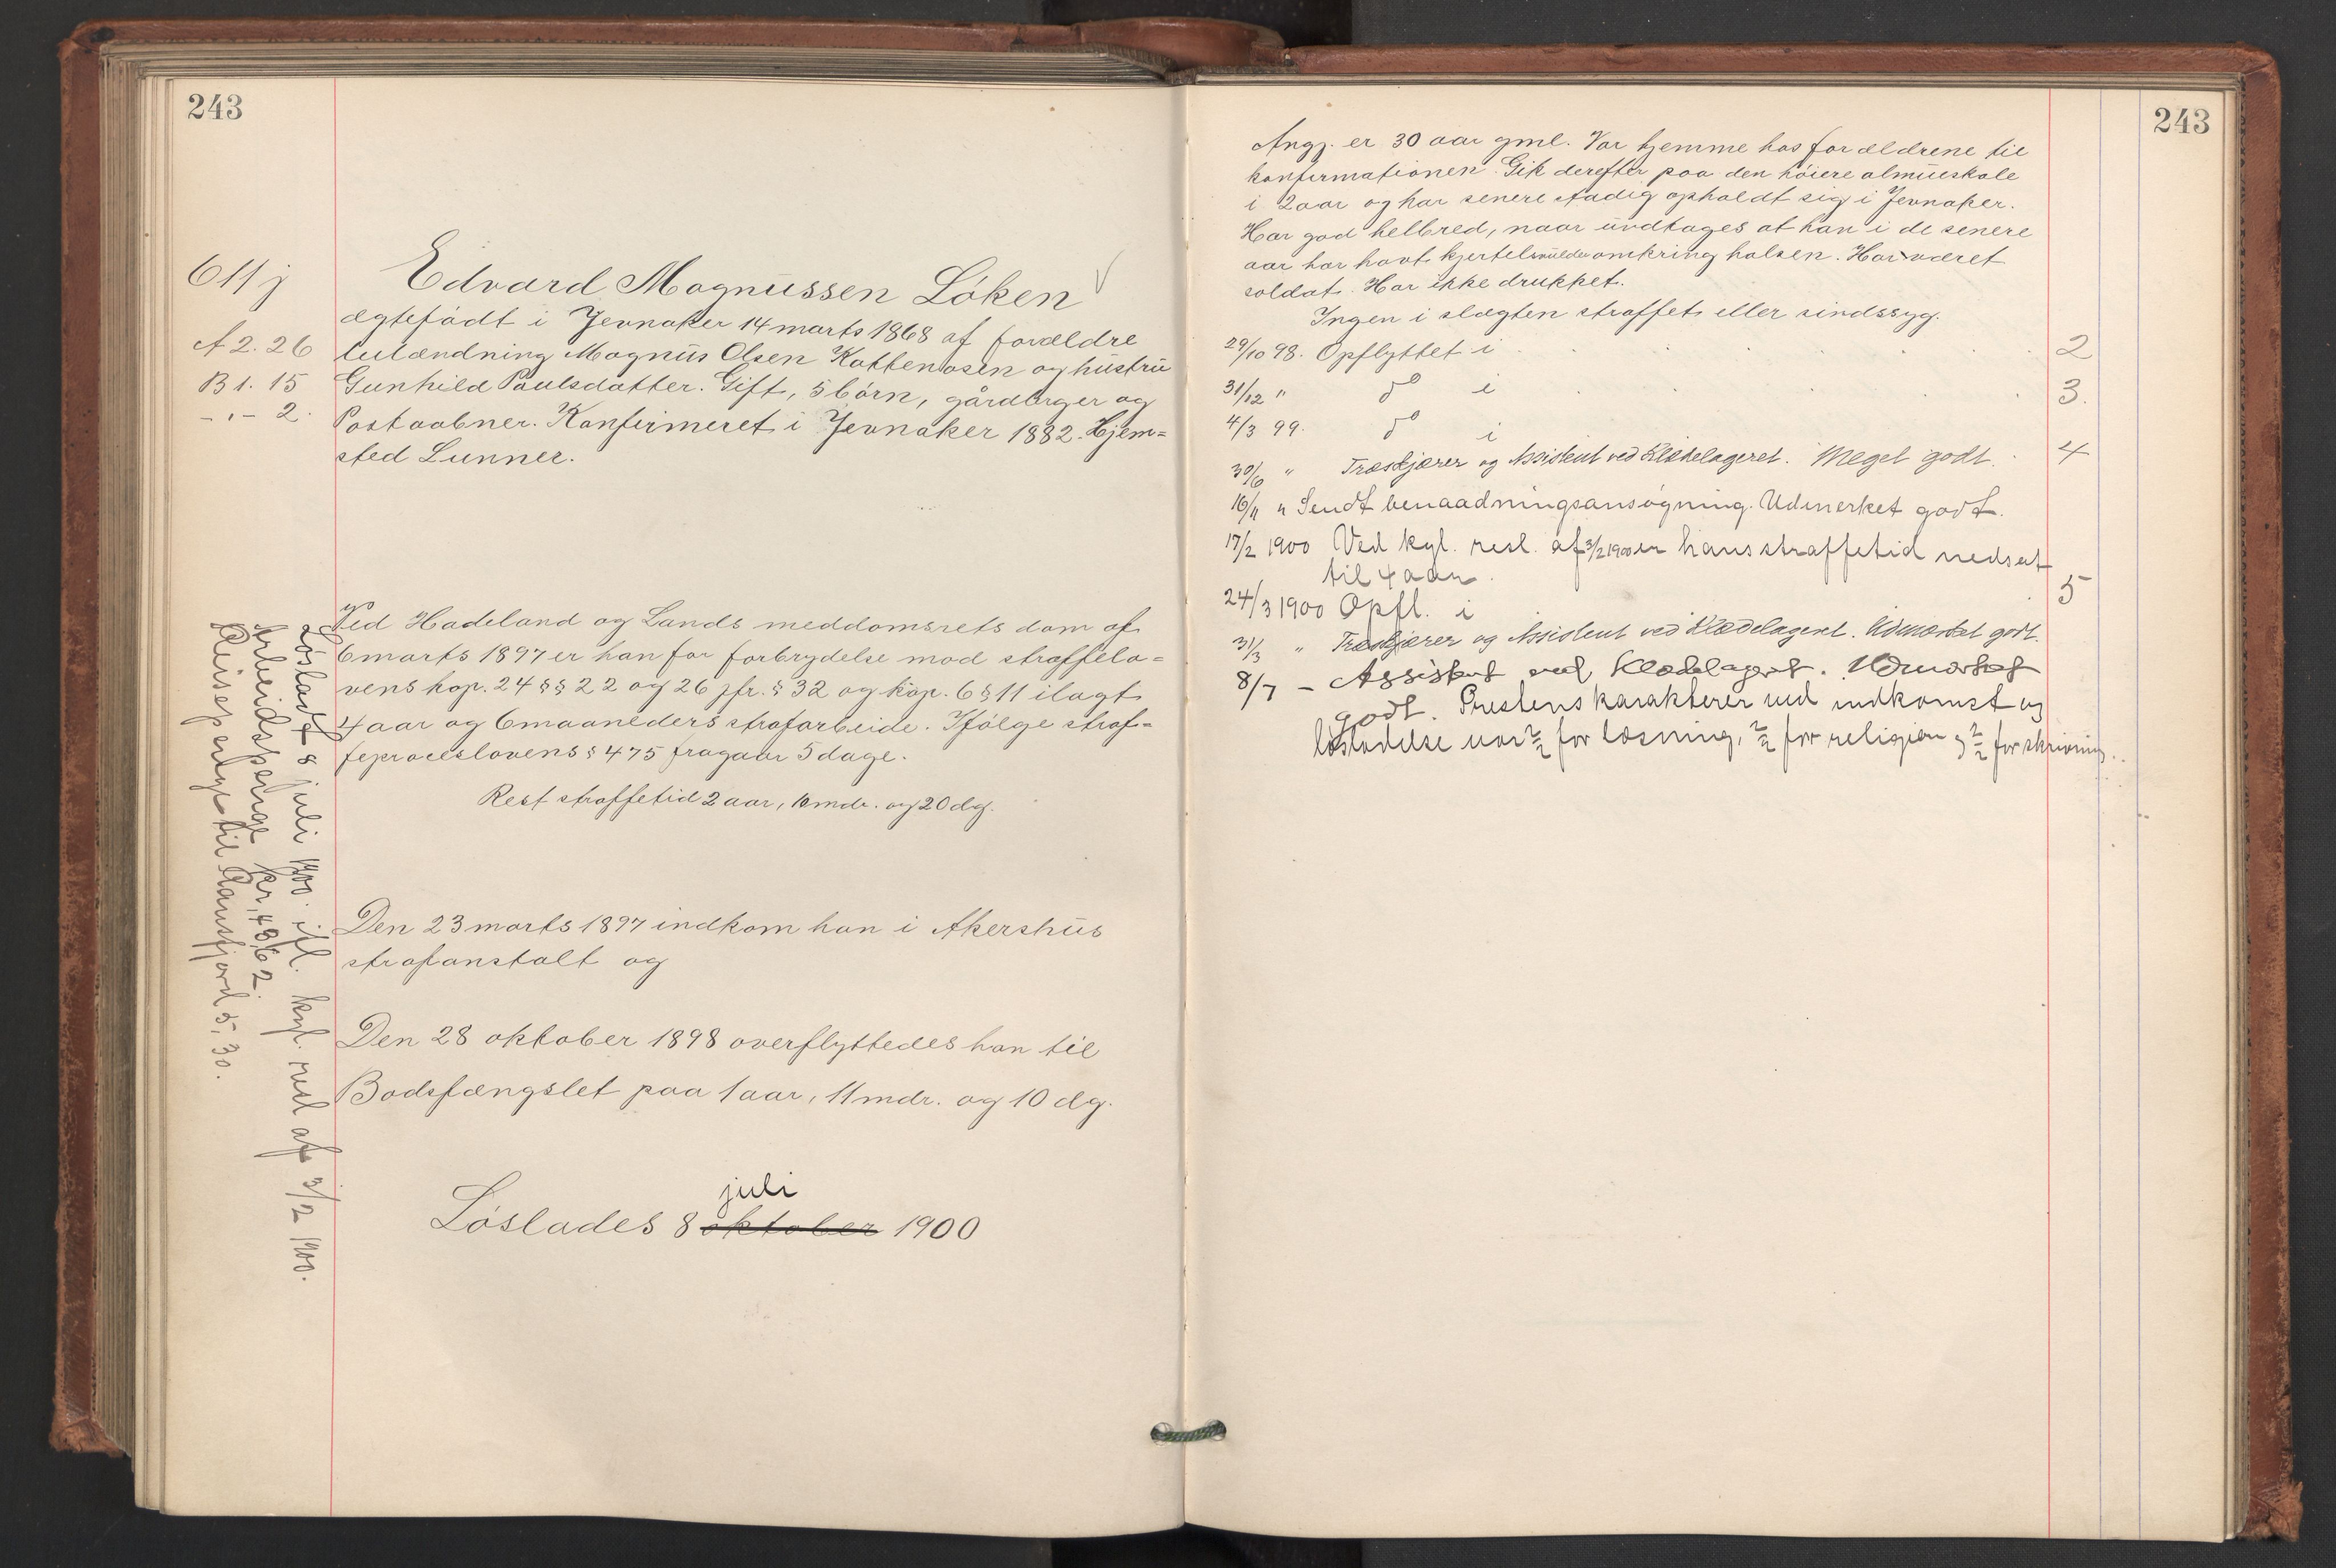 243
611 j
Edvard Magnussen Löken
ægtefödt i Jevnaker 14 marts 1868 af forældre
A 2. 26
lutændning Magnus Olsen Kattenosen og hustru
B 1. 15
Gunhild Paulsdatter. Gift, 5 börn, gårdbrger og
- " - 2.
Postaabner. Konfirmeret i Jevnaker 1882. Hjem=
sted Lunner.
Ved Hadeland og Lands meddomsrets dom af
6 marts 1897 er han for forbrydelse mod straffelo=
vens kap. 24 §§ 22 og 26 jfr. § 32 og kap. 6 § 11 ilagt
4 aar og 6 maaneders strafarbeide. Ifölge straf=
feproceslovens § 475 fragaar 5 dage.
Rest straffetid 2 aar, 10 mdr. og 20 dg.
Den 23 marts 1897 indkom han i Akershus
strafanstalt og
Den 28 oktober 1898 overflyttedes han til
Bodsfængslet paa 1 aar, 11 mdr. og 10 dg.
juli
Löslades 8 oktober 1900
Lösladt 8 juli 1900. ifl. kgl. resl af 3/2 1900.
Arbeidspenge kr. 43,62.
Reisepenge til Randsfjord 5,30.
243
Angj. er 30 aar gml. Var hjemme hos forældrene til
konfirmationen. Gik derefter paa den höiere almueskole
i 2 aar og har senere stadig opholdt sig i Jevnaker.
Har god helbred, naar undtages at han i de senere
aar har havt kjertelsvulder omkring halsen. Har været
soldat. Har ikke drukket.
Ingen i slægten straffet eller sindssyg.
29/10 98. Opflyttet i 2
31/12 " do i 3.
4/3 99. do i 4
30/6 " Træskjærer og Assistent ved Klædelageret. Meget godt.
16/11 " Sendt benaadningsansögning. Udmerket godt.
17/2 1900 Ved kgl. resl. af 3/2 1900 er hans straffetid nedsat
til 4 aar.
24/3 1900 Opfl. i 5
31/3 " Træskjærer og Assistent ved Klædelageret. Udmærket godt.
8/7 - Assistent ved Klædelageret. Udmærket
godt. Prestens karakterer ved indkomst og
lösladelse var 2/2 for læsning, 2/2 for religion og 2/2 for skrivning.